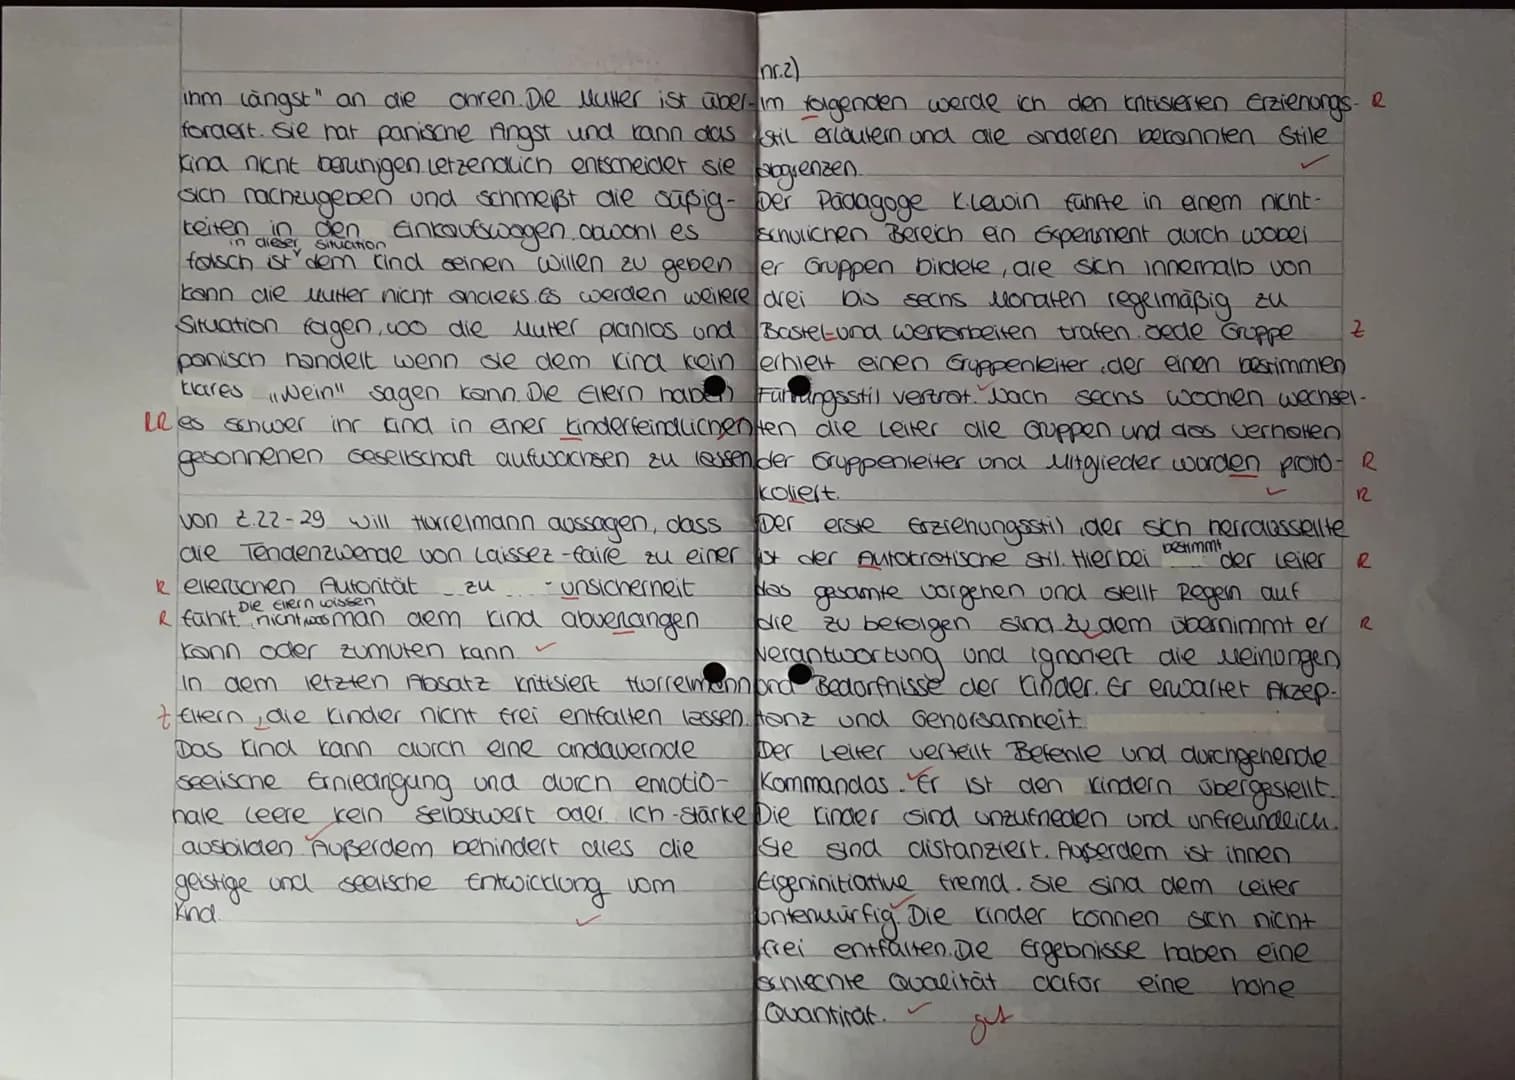 ihm längst" an die Ohren. Die Mutter ist über-
fordert. Sie hat panische Angst und kann das
Kind nicht beruhigen. Letzendlich entscheidet sie
sich nachzugeben und schmeißt die Süßig-
keiten in den Einkaufswagen. Obwohl es
in dieser Situation
falsch ist dem Kind seinen Willen zu geben
kann die Mutter nicht anders. Es werden weitere
Situation folgen, wo die Mutter planlos und
panisch handelt wenn sie dem Kind kein
klares „Nein" sagen kann. Die Eltern haben
RR es schwer ihr Kind in einer kinderfeindlichen
gesonnenen Gesellschaft aufwachsen zu lassen
Von Z.22-29 will Hurrelmann aussagen, dass
die Tendenzwende von Laissez-faire zu einer
R elterlichen Autorität zu unsicherheit
Die Eltern wissen
R führt. nicht was man dem Kind abverlangen
kann oder zumuten kann. ✓
In dem letzten Absatz kritisiert Hurrelmann
Z Eltern, die Kinder nicht frei entfalten lassen.
Das Kind kann durch eine andauernde
seelische Erniedrigung und durch emotio-
nale Leere kein Selbstwert oder Ich-Stärke
ausbilden. Außerdem behindert dies die
geistige und seelische Entwicklung vom
Kind.
nr.2)
Im folgenden werde ich den kritisierten Erziehungs- R
stil erläutern und die anderen bekannten Stile
abgrenzen.
Der Pädagoge K.Lewin führte in einem nicht-
schulichen Bereich ein Experiment durch wobei
er Gruppen bildete, die sich innerhalb von
drei bis sechs Monaten regelmäßig zu
Bastel-und Werkarbeiten trafen. Jede Gruppe Z
erhielt einen Gruppenleiter, der einen bestimmen
Führungsstil vertrat. Nach sechs Wochen wechsel-
ten die Leiter die Gruppen und das Verhalten
der Gruppenleiter und Mitglieder worden proto- R
koliert. R
Der erste Erziehungsstil, der sich herrausstellte
ist der Autokratische Stil. Hierbei bestimmt der Leiter R
das gesamte Vorgehen und stellt Regeln auf
die zu befolgen sind. Zu dem übernimmt er R
Verantwortung und ignoriert die Meinungen
und Bedürfnisse der Kinder. Er erwartet Akzep-
tanz und Gehorsamkeit.
Der Leiter verteilt Befehle und durchgehende
Kommandos. Er ist den Kindern übergestellt.
Die Kinder sind unzufrieden und unfreundlich.
Sie sind distanziert. Außerdem ist ihnen
Eigeninitiative fremd. Sie sind dem Leiter
unterwürfig. Die Kinder können sich nicht
frei entfalten. Die Ergebnisse haben eine
schlechte Qualität dafür eine hohe
Quantität. ✓ gut